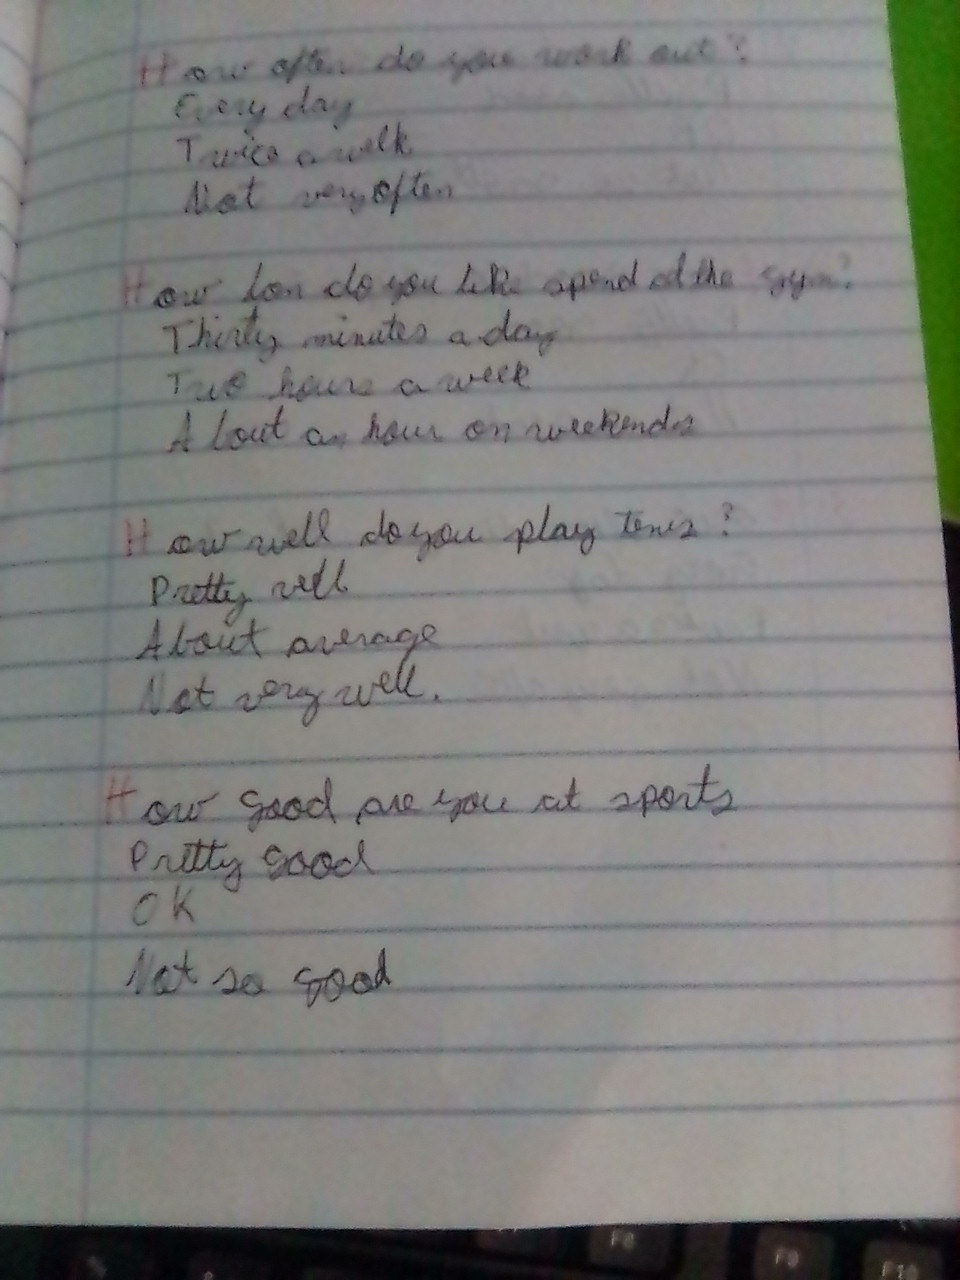 How often do you work out?
Every day
Twice a week
Not very often
How lon do you like spend at the gym?
Thirty minutes a day
Two hours a week
About an hour on weekends
How well do you play tenis?
Pretty well
About average
Not very well.
How good are you at sports
Pretty good
OK
Not so good
F8
F9
F10